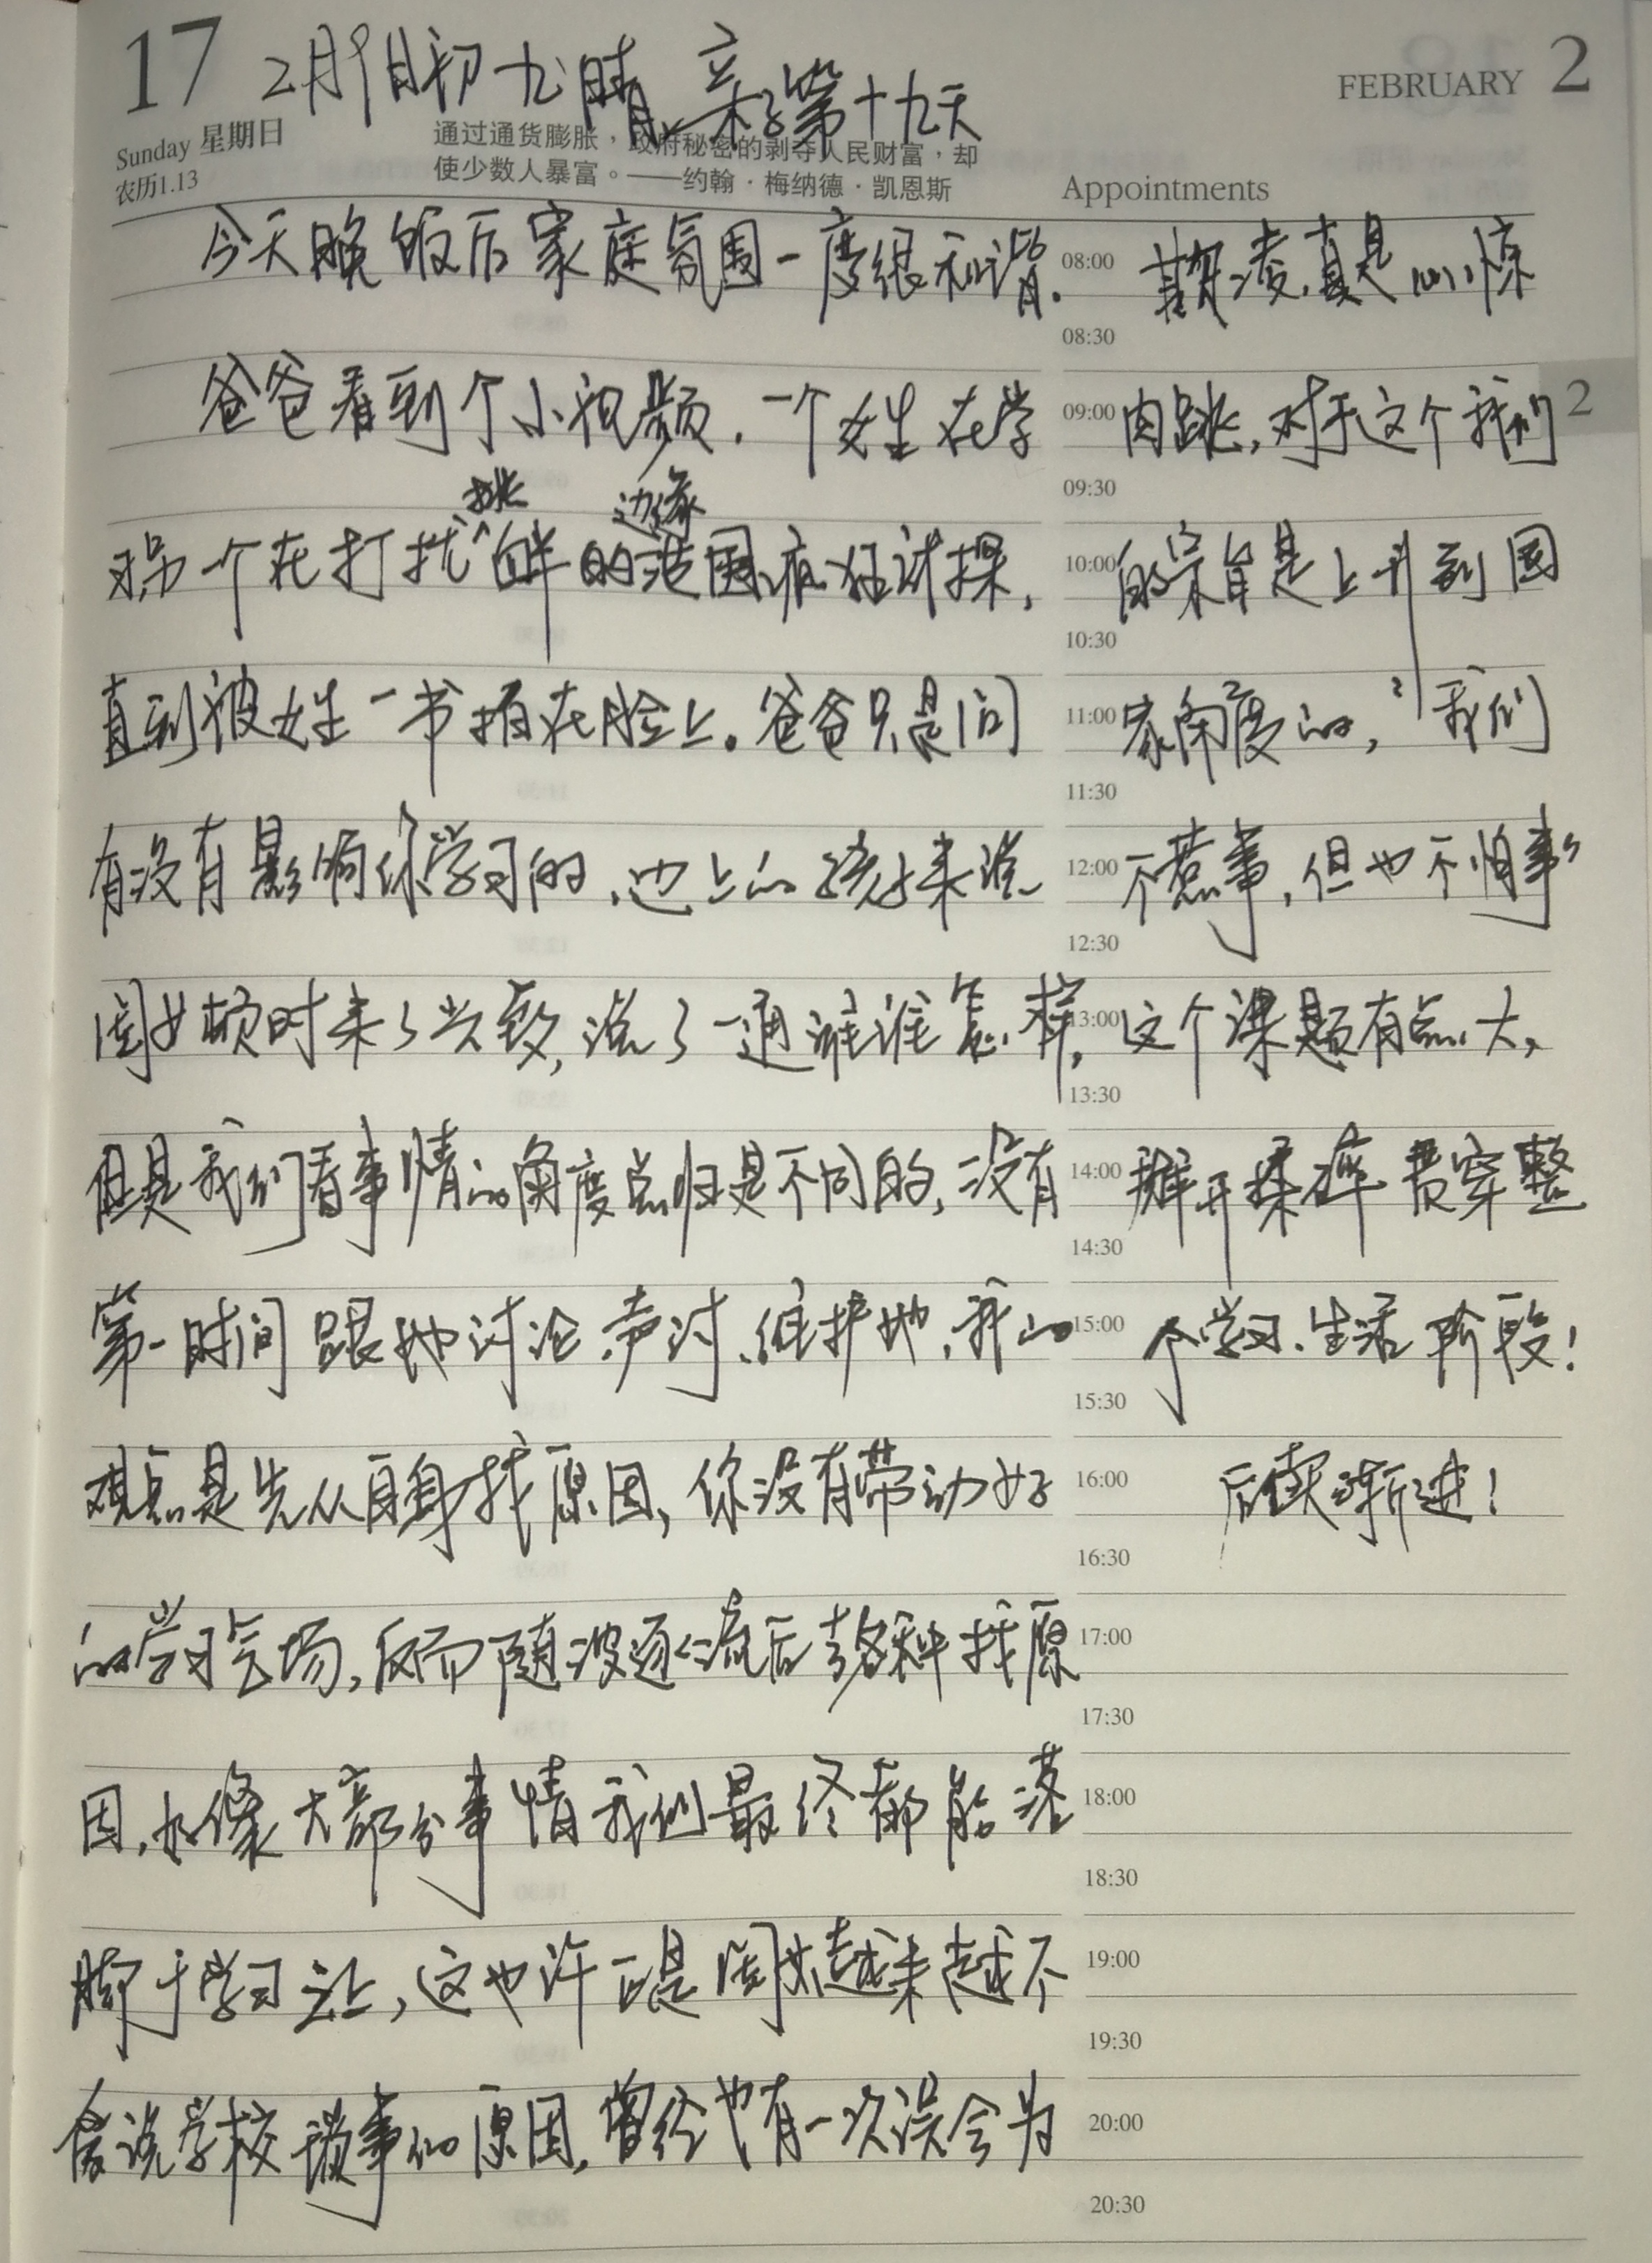 17
2月9日初九 晴 亲子第十九天
FEBRUARY 2
Sunday 星期日
农历1.13
通过通货膨胀，政府秘密的剥夺人民财富，却
使少数人暴富。——约翰·梅纳德·凯恩斯
Appointments
今天晚饭后家庭氛围一度很和谐.
爸爸看到个小视频，一个女生在学
习另一个在打扰挑衅的边缘范围疯狂试探，
直到被女生一书拍在脸上。爸爸只是问
有没有影响你学习的，边上的孩子来说
闺女顿时来了兴致，说了一通谁谁怎样，
但是我们看事情的角度总归是不同的，没有
第一时间跟她讨论、声讨、维护她，我的
观点是先从自身找原因，你没有带动好
的学习气场，反而随波逐流后去各种找原
因，好像大部分事情我们最终都能落
脚于学习之上，这也许可是闺女越来越不
会说学校琐事的原因，曾经也有一次误会为
08:00
08:30
09:00
09:30
10:00
10:30
11:00
11:30
12:00
12:30
13:00
13:30
14:00
14:30
15:00
15:30
16:00
16:30
17:00
17:30
18:00
18:30
19:00
19:30
20:00
20:30
欺凌，真是心惊
肉跳，对于这个我们
的宗旨是上升到国
家角度的，我们
不惹事，但也不怕事
这个课题有点大，
掰开揉碎贯穿整
个学习、生活阶段！
后续渐进！
2